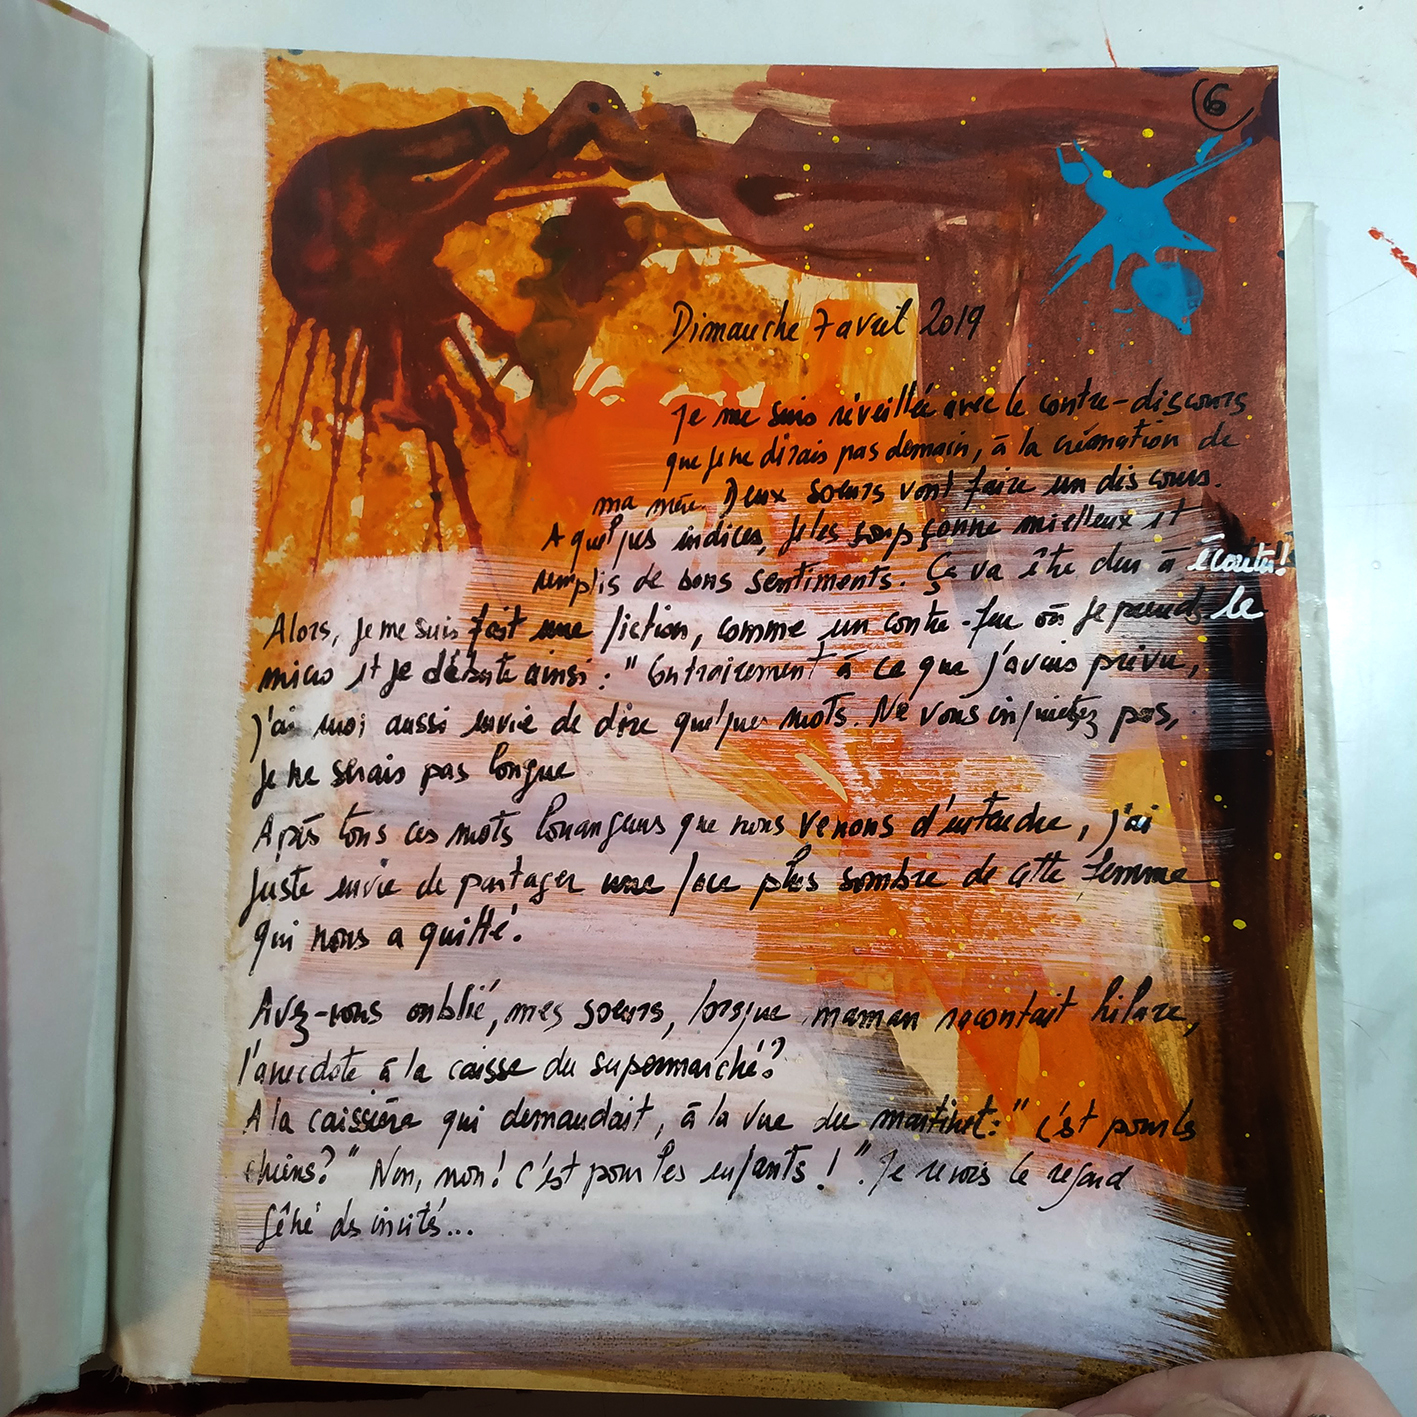 6
Dimanche 7 avril 2019
Je me suis réveillée avec le contre-discours
que je ne dirais pas demain, à la crémation de
ma mère. Deux soeurs vont faire un discours.
A quelques indices, je les soupçonne mielleux et
remplis de bons sentiments. Ça va être dur à écouter!
Alors, je me suis fait une fiction, comme un contre-feu où je prends le
micro et je débute ainsi : "Contrairement à ce que j'avais prévu,
j'ai moi aussi envie de dire quelques mots. Ne vous inquietez pas,
je ne serais pas longue
Après tous ces mots louangeurs que nous venons d'entendre, j'ai
juste envie de partager une face plus sombre de cette femme
qui nous a quitté.
Avez-vous oublié, mes soeurs, lorsque maman racontait hilare,
l'anecdote à la caisse du supermarché?
A la caissière qui demandait, à la vue du martinet: "c'est pour les
chiens?" Non, non! c'est pour les enfants!". Je revois le regard
gêné des invités...